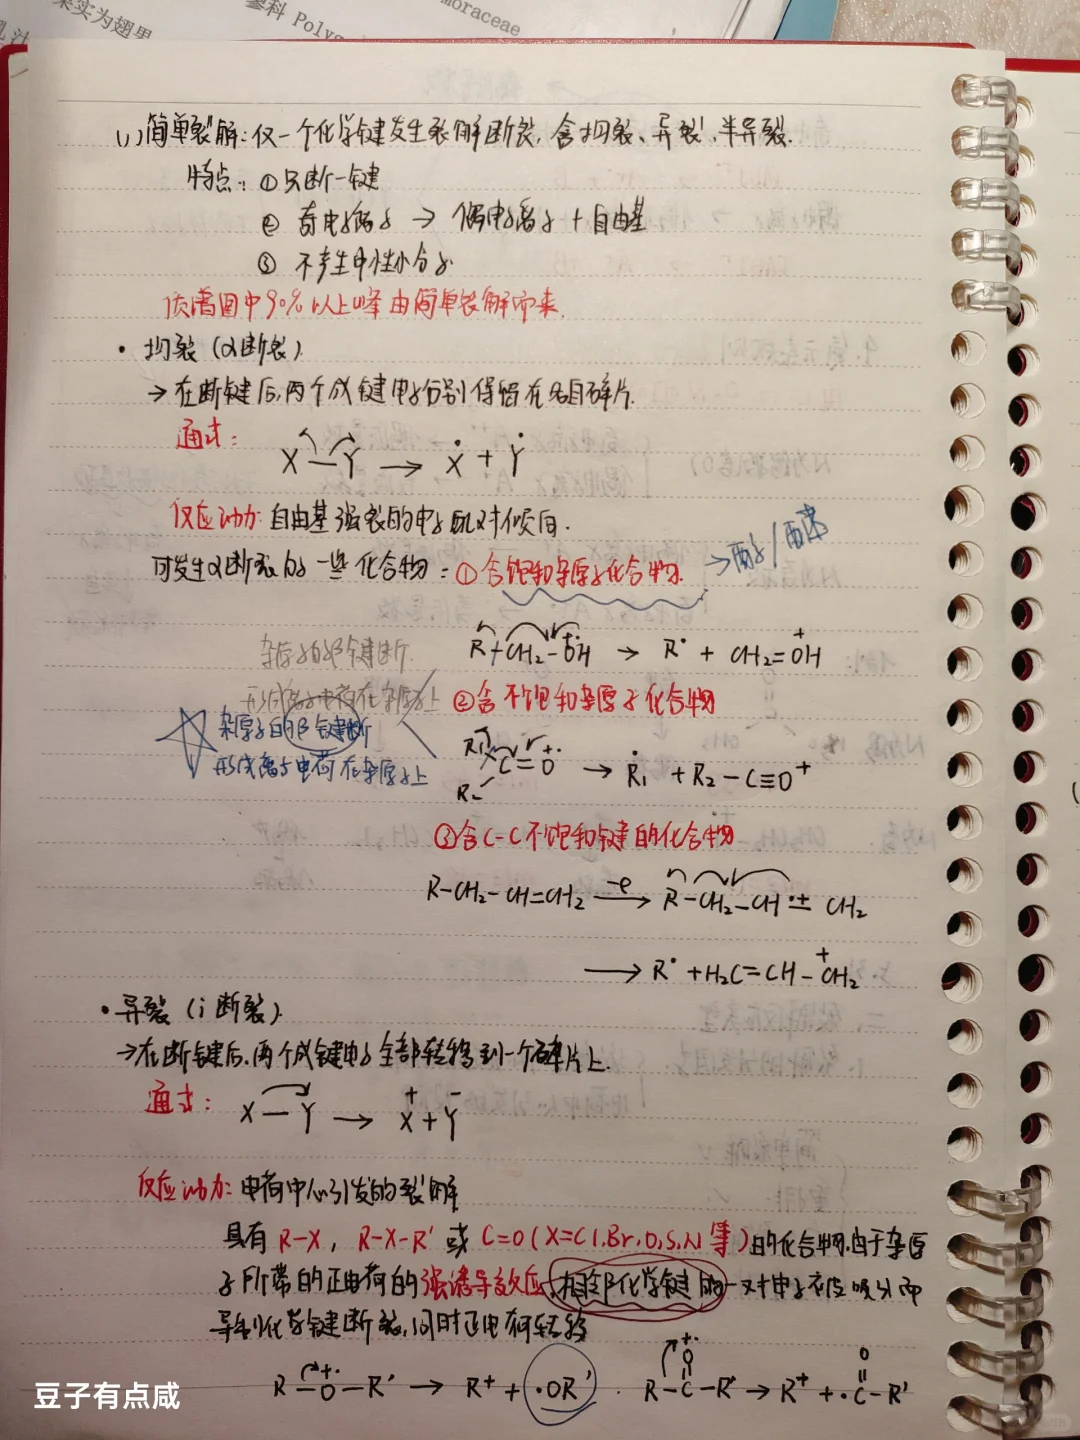 果实为翅果
蓼科 Polyg
moraceae
(1)简单裂解:仅一个化学键发生裂解断裂,含均裂、异裂、半异裂.
特点:①只断一键
② 奇电子离子 → 偶电子离子 + 自由基
③ 不产生中性小分子
质谱图中90%以上峰由简单裂解而来.
• 均裂(α断裂)
→在断键后,两个成键电子分别保留在各自碎片.
通式:
X—Y → Ẋ + Ẏ
反应动力:自由基强裂的电子配对倾向.
可发生α断裂的一些化合物:①含饱和杂原子化合物. →醇/醚
R+CH₂-ȮH → R• + CH₂=O⁺H
杂原子的β键断
形成离子电荷在杂原子上
②含不饱和杂原子化合物
杂原子的β键断
形成离子电荷在杂原子上
R₁
C=O⁺• → Ṙ₁ + R₂-C≡O⁺
R₂
③含C-C不饱和键的化合物
R-CH₂-CH=CH₂ —-e→ R-CH₂-CH•+—CH₂
→ R• + H₂C=CH-C⁺H₂
• 异裂(i断裂)
→在断键后,两个成键电子全部转移到一个碎片上.
通式: X—Y → X⁺ + Y⁻
反应动力:电荷中心引发的裂解
具有 R-X, R-X-R' 或 C=O(X=Cl,Br,O,S,N等)的化合物.由于杂原
子所带的正电荷的强诱导效应,相邻化学键的一对电子被吸引而
导制化学键断裂,同时正电荷转移
R—O⁺•—R' → R⁺ + •OR'
O⁺•
R-C-R' → R⁺ + •C-R'
O
豆子有点咸